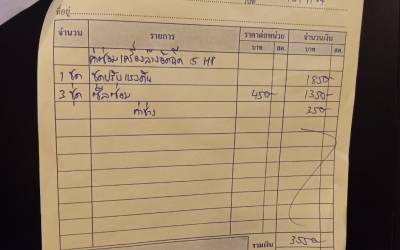 ที่อยู่
จำนวน รายการ ราคาต่อหน่วย จำนวนเงิน
บาท สต. บาท สต.
ค่าซ่อมเครื่องล้างอัดฉีด 5 HP
1 ชุด ชุดปรับแรงดัน 1850-
3 ชุด ซีลซ่อม 450- 1350-
ค่าช่าง 350-
รวมเงิน 3550-